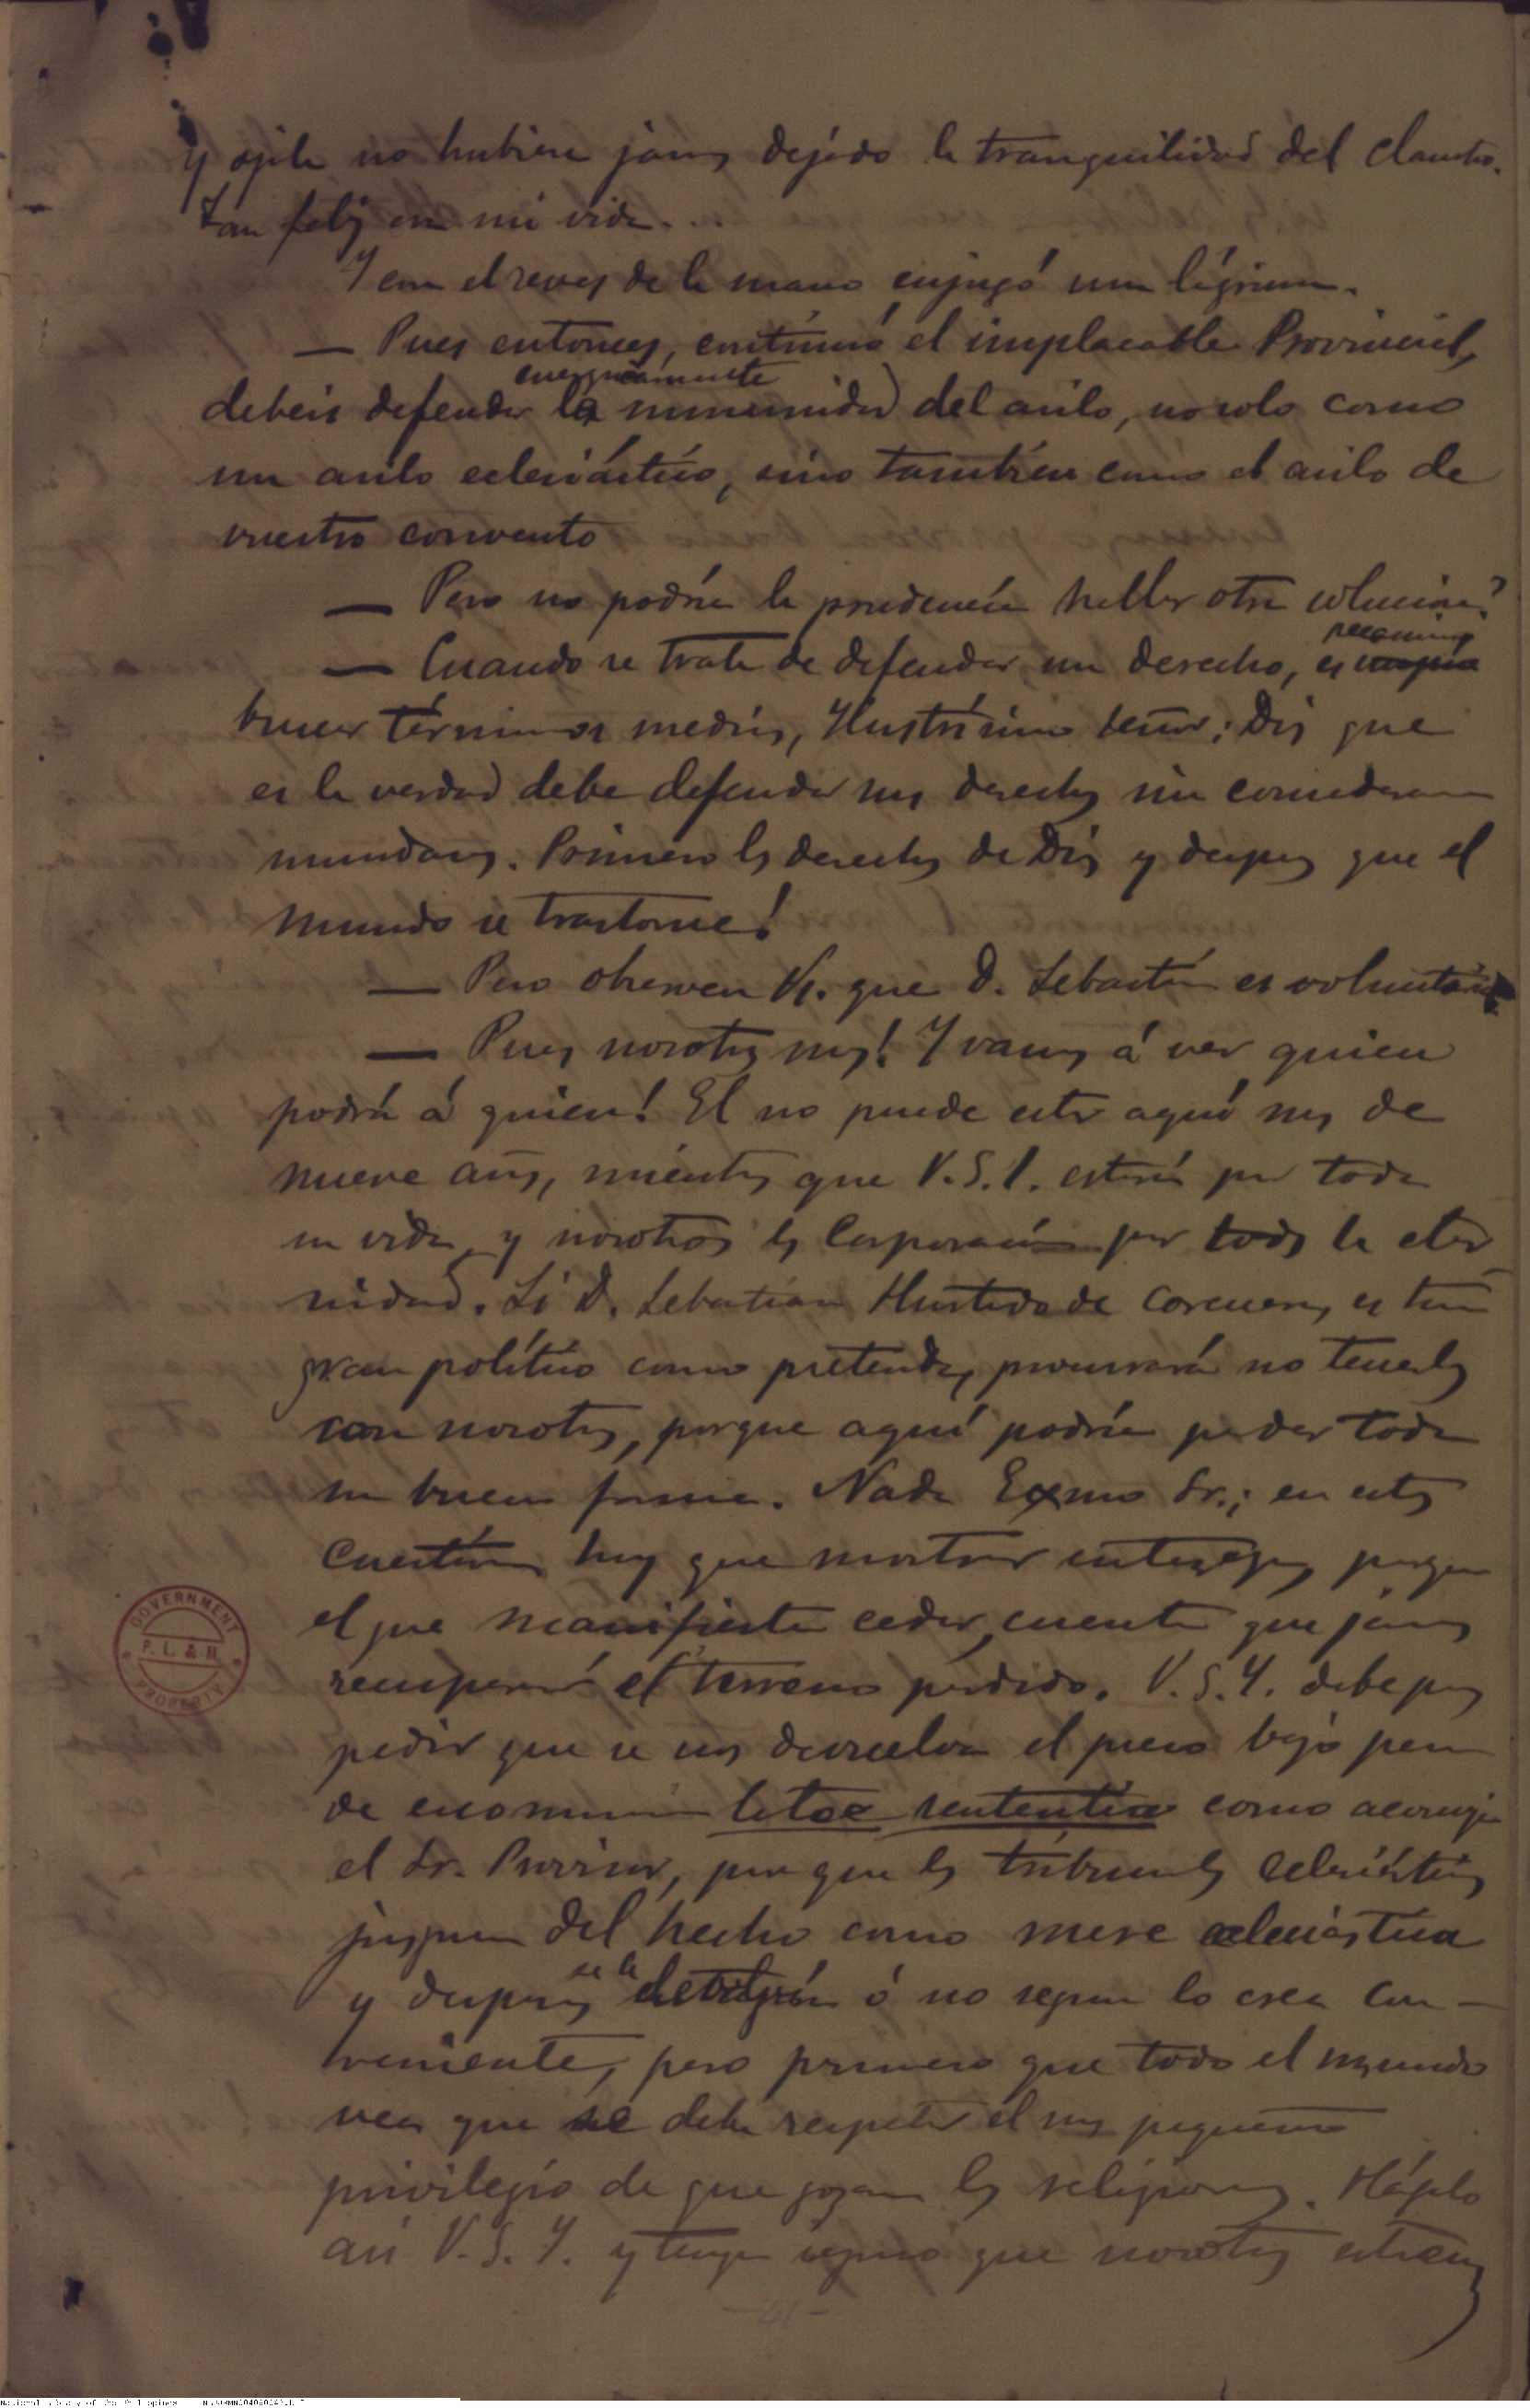 y no hubiera jamás dejado la tranquilidad del claustro.
tan feliz era mi vida...
Y con el revés de la mano enjugó una lágrima.
— Pues entonces, continuó el implacable Provincial,
enérgicamente
debeis defender la inmunidad del asilo, no solo como
un asilo eclesiástico, sino tambien como el asilo de
vuestro convento
— Pero no podría la prudencia hallar otra solucion?
pecaminoso
— Cuando se trata de defender un derecho, es
buscar términos medios, Ilustrísimo Señor; Dios que
es la verdad debe defender sus derechos sin
mundanas. Primero los derechos de Dios y despues que el
mundo se trastorne!
— Pero observen Vs. que D. Sebastián es voluntarioso
— Pues nosotros más! Y vamos á ver quien
podrá á quien! El no puede estar aquí mas de
nueve años, mientras que V.S.I. estará por toda
su vida, y nosotros las Corporaciones por toda la eter
nidad. Si D. Sebastian Hurtado de Corcuera, es tan
gran político como pretende, procurará no tenerlas
con nosotros, porque aquí podría perder toda
su buena fama. Nada Exmo Sr.; en estas
cuestiones hay que mostrar entereza, porque
el que manifiesta ceder, cuente que jamas
recuperará el terreno perdido. V.S.Y. debe pues
pedir que se nos devuelva el preso bajo pena
de excomunion latae sententiae como aconseja
el Sr. Provisor, para que los tribunales eclesiásticos
juzguen del hecho como mere eclesiástica
se le
y despues devolverán ó no segun lo crea con-
veniente, pero primero que todo el mundo
vea que se debe respetar el mas pequeño
privilegio de que gozan los religiosos. Hágalo
así V.S.Y. y tenga seguro que nosotros estaremos
GOVERNMENT
P. L. & M.
PROPERTY